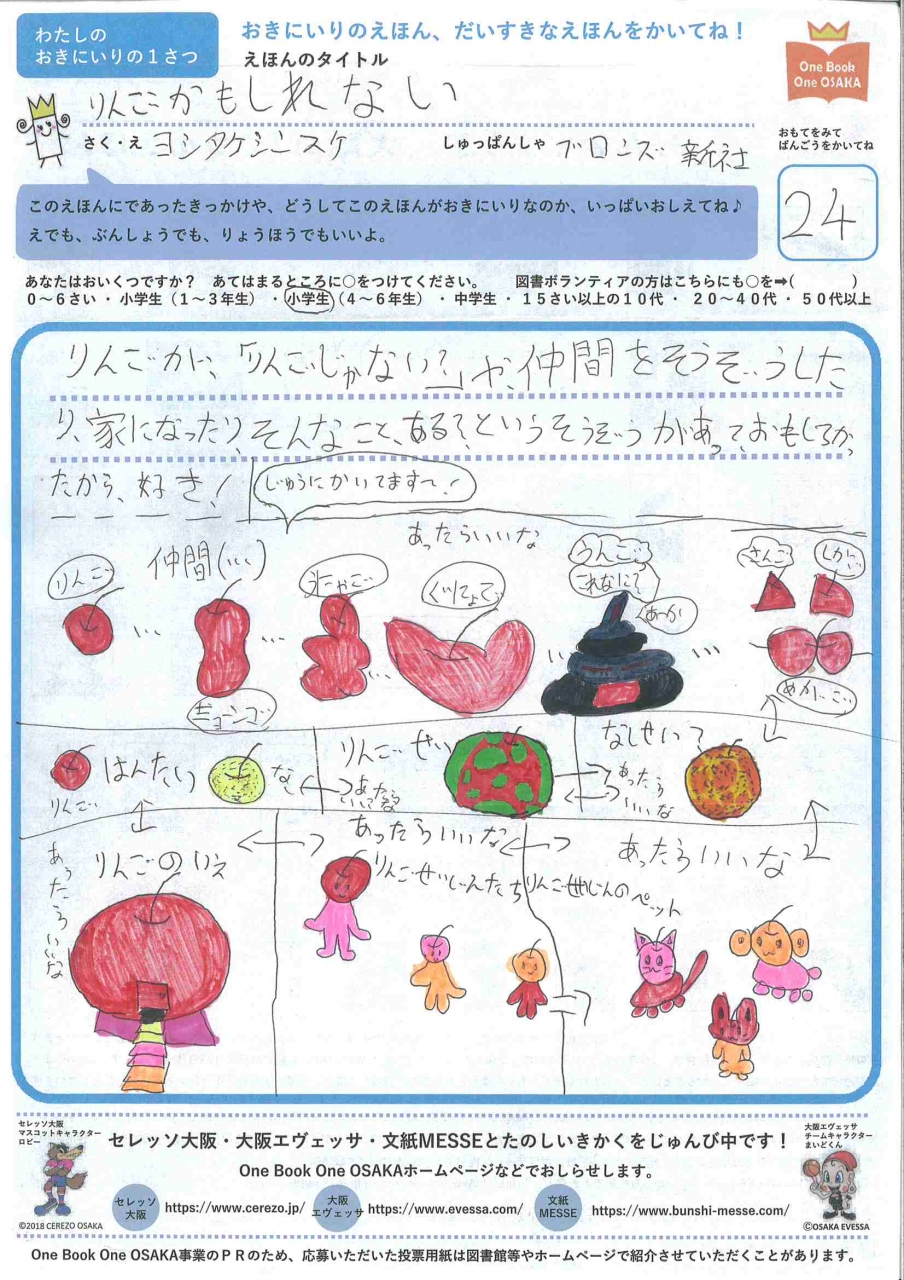 わたしの
おきにいりの1さつ
おきにいりのえほん、だいすきなえほんをかいてね！
えほんのタイトル
りんごかもしれない
One Book
One OSAKA
さく・え ヨシタケシンスケ
しゅっぱんしゃ ブロンズ新社
おもてをみて
ばんごうをかいてね
24
このえほんにであったきっかけや、どうしてこのえほんがおきにいりなのか、いっぱいおしえてね♪
えでも、ぶんしょうでも、りょうほうでもいいよ。
あなたはおいくつですか？ あてはまるところに○をつけてください。 図書ボランティアの方はこちらにも○を➡( )
0～6さい・小学生（1～3年生）・小学生（4～6年生）・中学生・15さい以上の10代・20～40代・50代以上
りんごが、「りんごじゃない?」や、仲間をそうぞうした
り、家になったり、そんなこと、ある?というそうぞうがあっておもしろかっ
たから、好き!
じゅうにかいてますー!
あったらいいな
仲間(…)
りんご
うんご
さんご
しかご
めがご
はんたい
りんご
なし
りんごせい
あったら
いいな
なしせい?
あったら
いいな
あったらいいな
りんごのいえ
あったらいいな
りんごせいじんたち
あったらいいな
りんごせいじんの
ペット
セレッソ大阪
マスコットキャラクター
ロビー
セレッソ大阪・大阪エヴェッサ・文紙MESSEとたのしいきかくをじゅんび中です！
One Book One OSAKAホームページなどでおしらせします。
大阪エヴェッサ
チームキャラクター
まいどくん
セレッソ
大阪
https://www.cerezo.jp/
大阪
エヴェッサ
https://www.evessa.com/
文紙
MESSE
https://www.bunshi-messe.com/
©2018 CEREZO OSAKA
©OSAKA EVESSA
One Book One OSAKA事業のPRのため、応募いただいた投票用紙は図書館等やホームページで紹介させていただくことがあります。